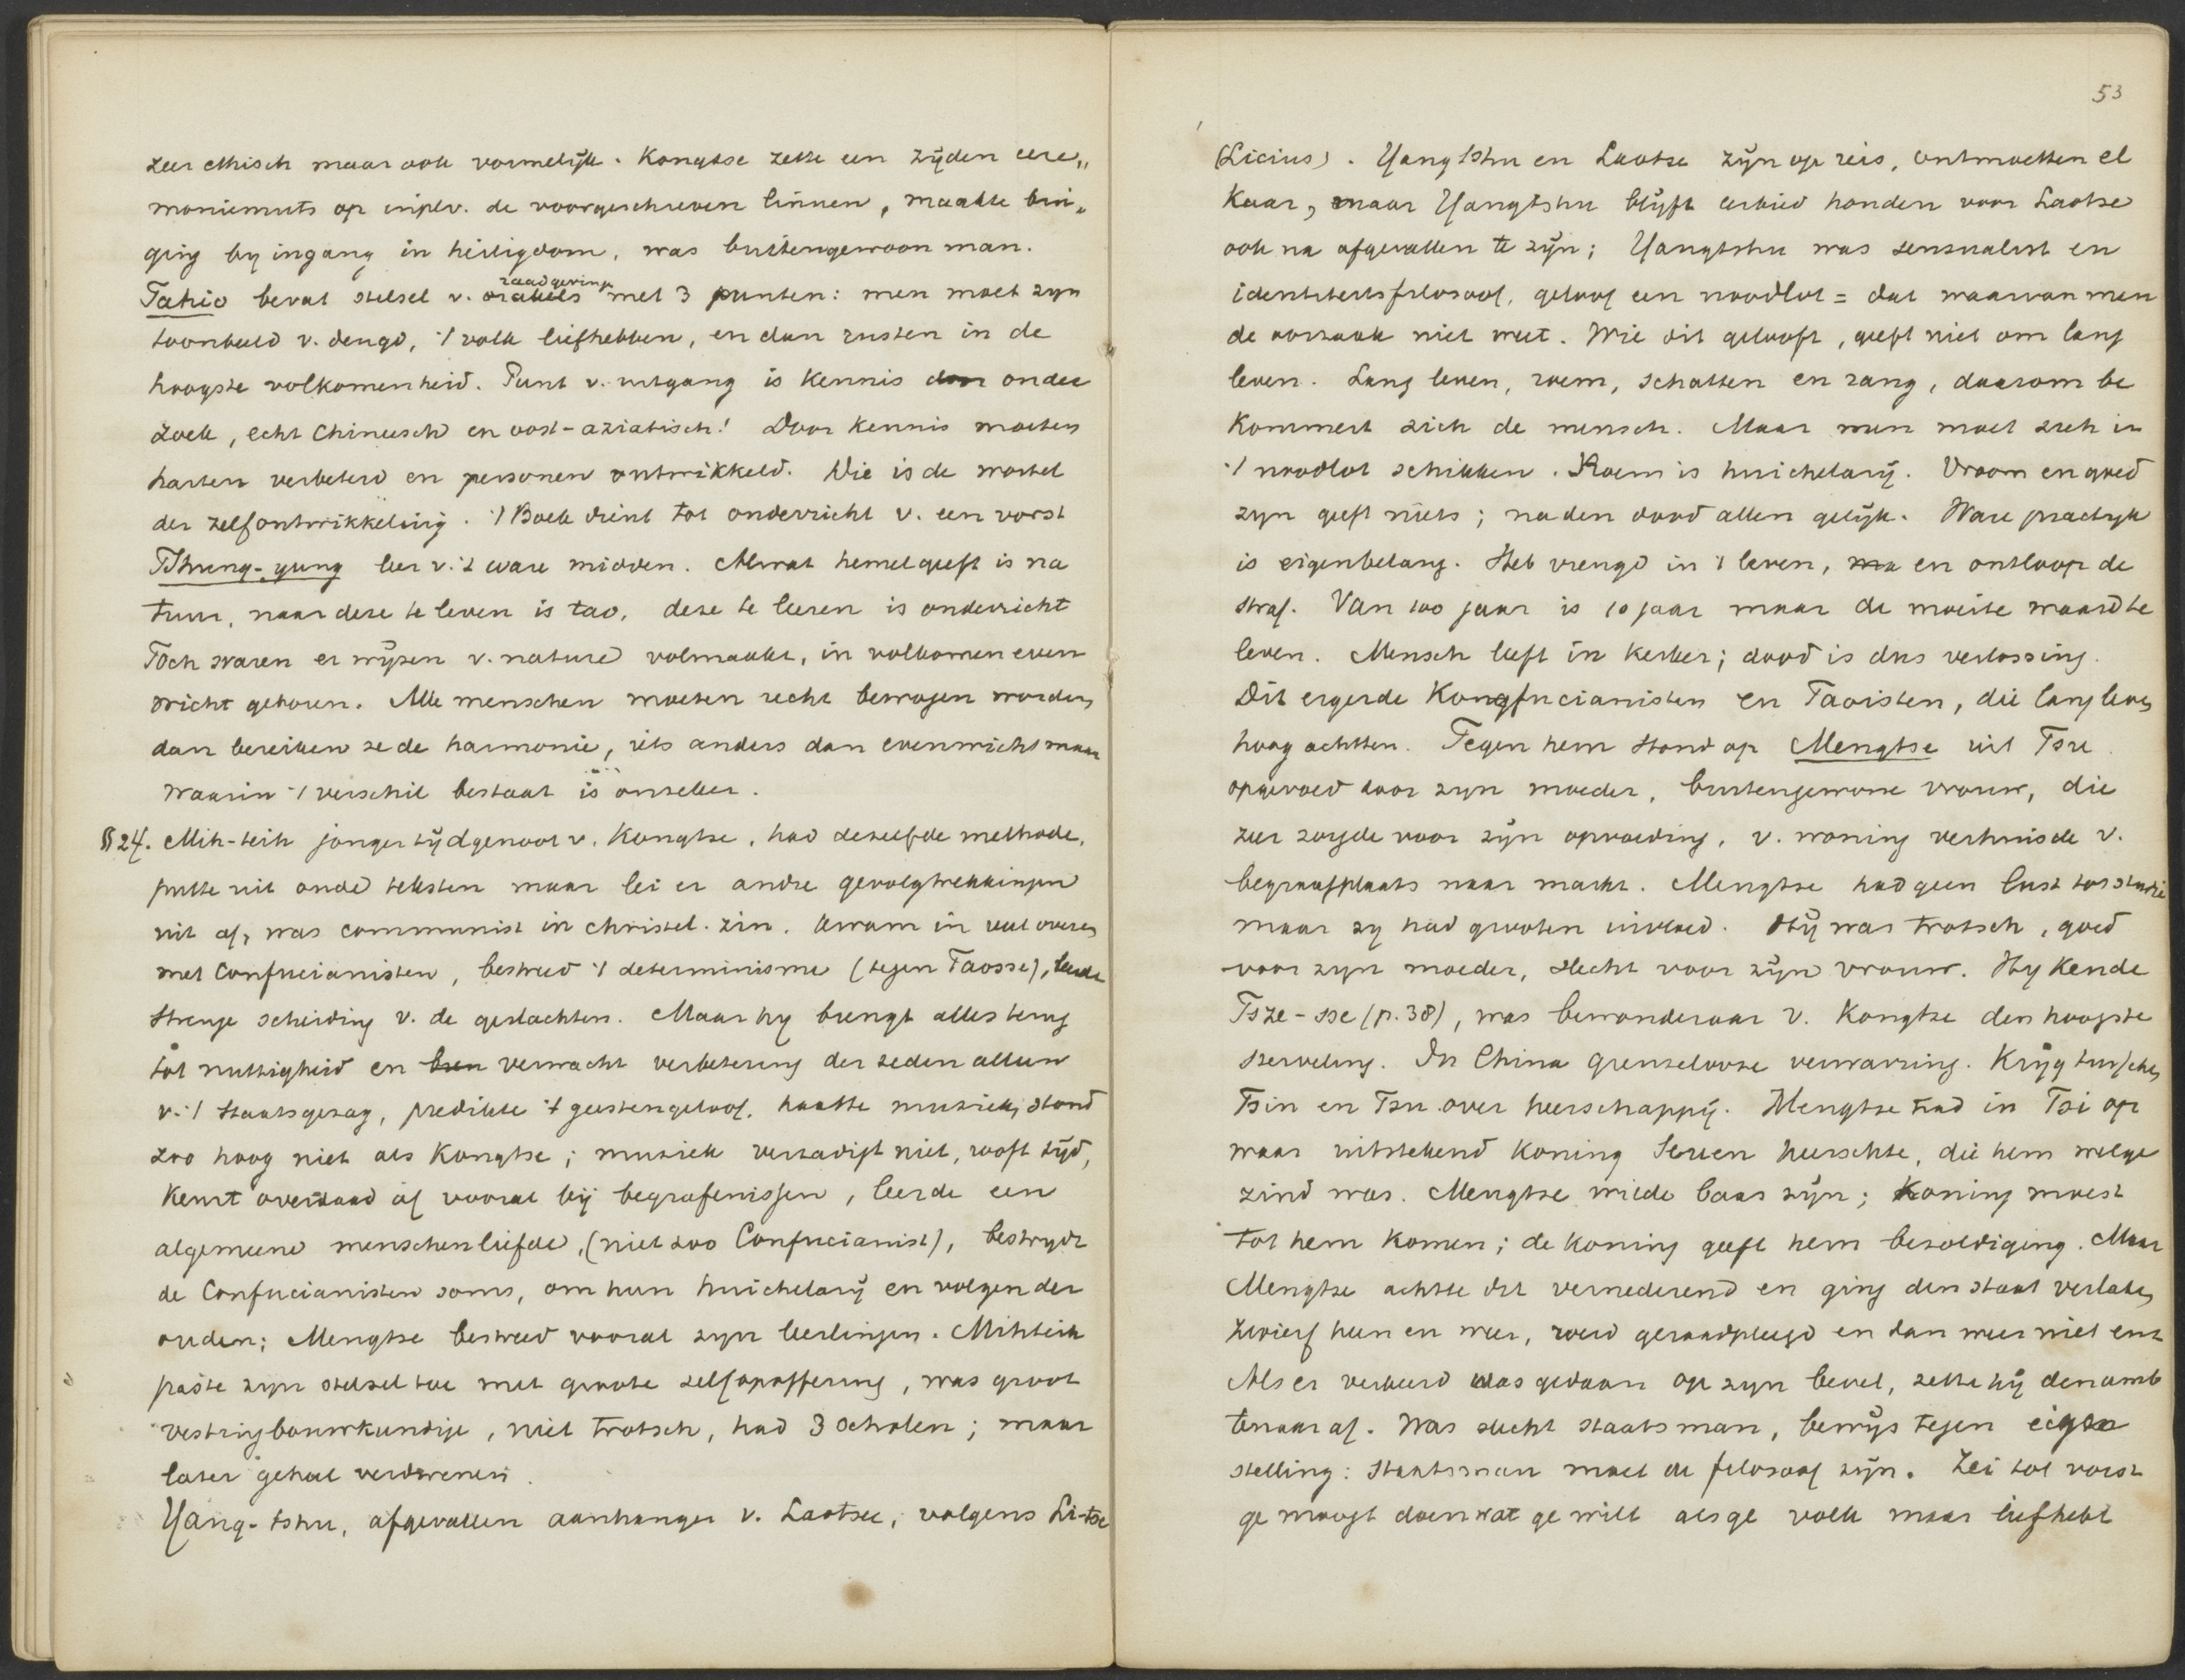 zeer ethisch maar ook vormelijk. Kongtse zette een zijden cere„
moniemuts op in pl.v. de voorgeschreven linnen, maakte bui„
ging by ingang in heiligdom, was buitengewoon man.
raadgeving
Tahio bevat stelsel v. orakels met 3 punten: men moet zyn
toonbeeld v. deugd, 't volk liefhebben, en dan rusten in de
hoogste volkomenheid. Punt v. uitgang is kennis door onder
zoek, echt Chineesch en oost-aziatisch! Door kennis moeten
harten verbeterd en personen ontwikkeld. Die is de wortel
der zelfontwikkeling. 't Boek dient tot onderricht v. een vorst
Tshung-yung leer v. 't ware midden. Al wat hemel geeft is na
tuur, naar deze te leven is tao, deze te leeren is onderricht
Toch waren er wijzen v. nature volmaakt, in volkomen even
wicht geboren. Alle menschen moeten recht bewogen worden,
dan bereiken ze de harmonie, iets anders dan evenwicht maar
waarin 't verschil bestaat is onzeker.
§ 24. Mih-teih jonger tijdgenoot v. Kongtse, had dezelfde methode,
putte uit oude teksten maar lei er andre gevolgtrekkingen
uit af, was communist in christel. zin. Kwam in veel overeen
met Confucianisten, bestreed 't determinisme (tegen Taosse), leerde
strenge scheiding v. de geslachten. Maar hy brengt alles terug
tot nuttigheid en been verwacht verbetering der zeden alleen
v. 't staatsgezag, predikte 't geestengeloof, haatte muziek, stond
zoo hoog niet als Kongtse; muziek verzadigt niet, rooft tijd,
keurt overdaad af vooral bij begrafenissen, leerde een
algemeene menschenliefde, (niet zoo Confucianist), bestrydt
de Confucianisten soms, om hun huichelarij en volgen der
ouden; Mengtse bestreed vooral zyn leerlingen. Mihteih
paste zyn stelsel toe met groote zelfopoffering, was groot
vestingbouwkundige, niet trotsch, had 3 scholen; maar
later geheel verdwenen.
Yang-tshu, afgevallen aanhanger v. Laotsee, volgens Li-tse
53
(Licius). Yangtshu en Laotse zijn op reis, ontmoetten el
kaar, maar Yangtshu blijft eerbied houden voor Laotse
ook na afgevallen te zijn; Yangtshu was sensualist en
identiteitsfilosoof, geloof een noodlot = dat waarvan men
de oorzaak niet weet. Wie dit gelooft, geeft niet om lang
leven. Lang leven, roem, schatten en rang, daarom be
kommert zich de mensch. Maar men moet zich in
't noodlot schikken. Roem is huichelarij. Vroom en goed
zyn geeft niets; na den dood allen gelijk. Ware practyk
is eigenbelang. Heb vreugd in 't leven, ma en ontloop de
straf. Van 100 jaar is 10 jaar maar de moeite waard te
leven. Mensch leeft in kerker; dood is dus verlossing.
Dit ergerde Kongfucianisten en Taoisten, die lang leven
hoog achtten. Tegen hem stond op Mengtse uit Tsu
opgevoed door zyn moeder, buitengewone vrouw, die
zeer zorgde voor zijn opvoeding, v. woning verhuisde v.
begraafplaats naar markt. Mengtse had geen lust tot studie
maar zy had grooten invloed. Hij was trotsch, goed
voor zyn moeder, slecht voor zijn vrouw. Hy kende
Tsze-sse (p. 38), was bewonderaar v. Kongtse den hoogste
sterveling. In China grenzelooze verwarring. Krijg tusschen
Tsin en Tsu over heerschappij. Mengtse trad in Tsi op
waar uitstekend koning Seuen heerschte, die hem welge
zind was. Mengtse wilde baas zijn; koning moest
tot hem komen; de koning geeft hem bezoldiging. Maar
Mengtse achtte dit vernederend en ging den staat verlaten,
zwierf heen en weer, werd geraadpleegd en dan weer niet enz
Als er verkeerd was gedaan op zyn bevel, zette hij den amb
tenaar af. Was slecht staatsman, bewijs tegen eigen
stelling: staatsman moet de filosoof zijn. Zei tot vorst
ge moogt doen wat ge wilt als ge volk maar liefhebt